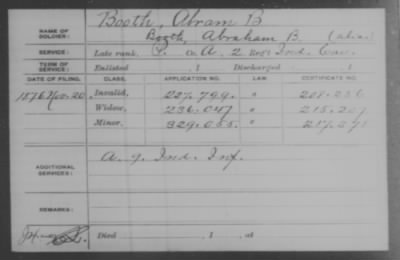 NAME OF SOLDIER: Booth, Abram B
Booth, Abraham B. (alias)
SERVICE: Late rank, P. Co. A, 2 Reg't Ind. Cav.
TERM OF SERVICE: Enlisted , 1 Discharged , 1
DATE OF FILING. CLASS. APPLICATION NO. LAW. CERTIFICATE NO.
1876 Nov. 20 Invalid, 227.799. "
Widow, 236.047 " 215.207
Minor, 329.055. "
ADDITIONAL SERVICES: A. 7. Ind. Inf.
REMARKS:
Died , 1 , at